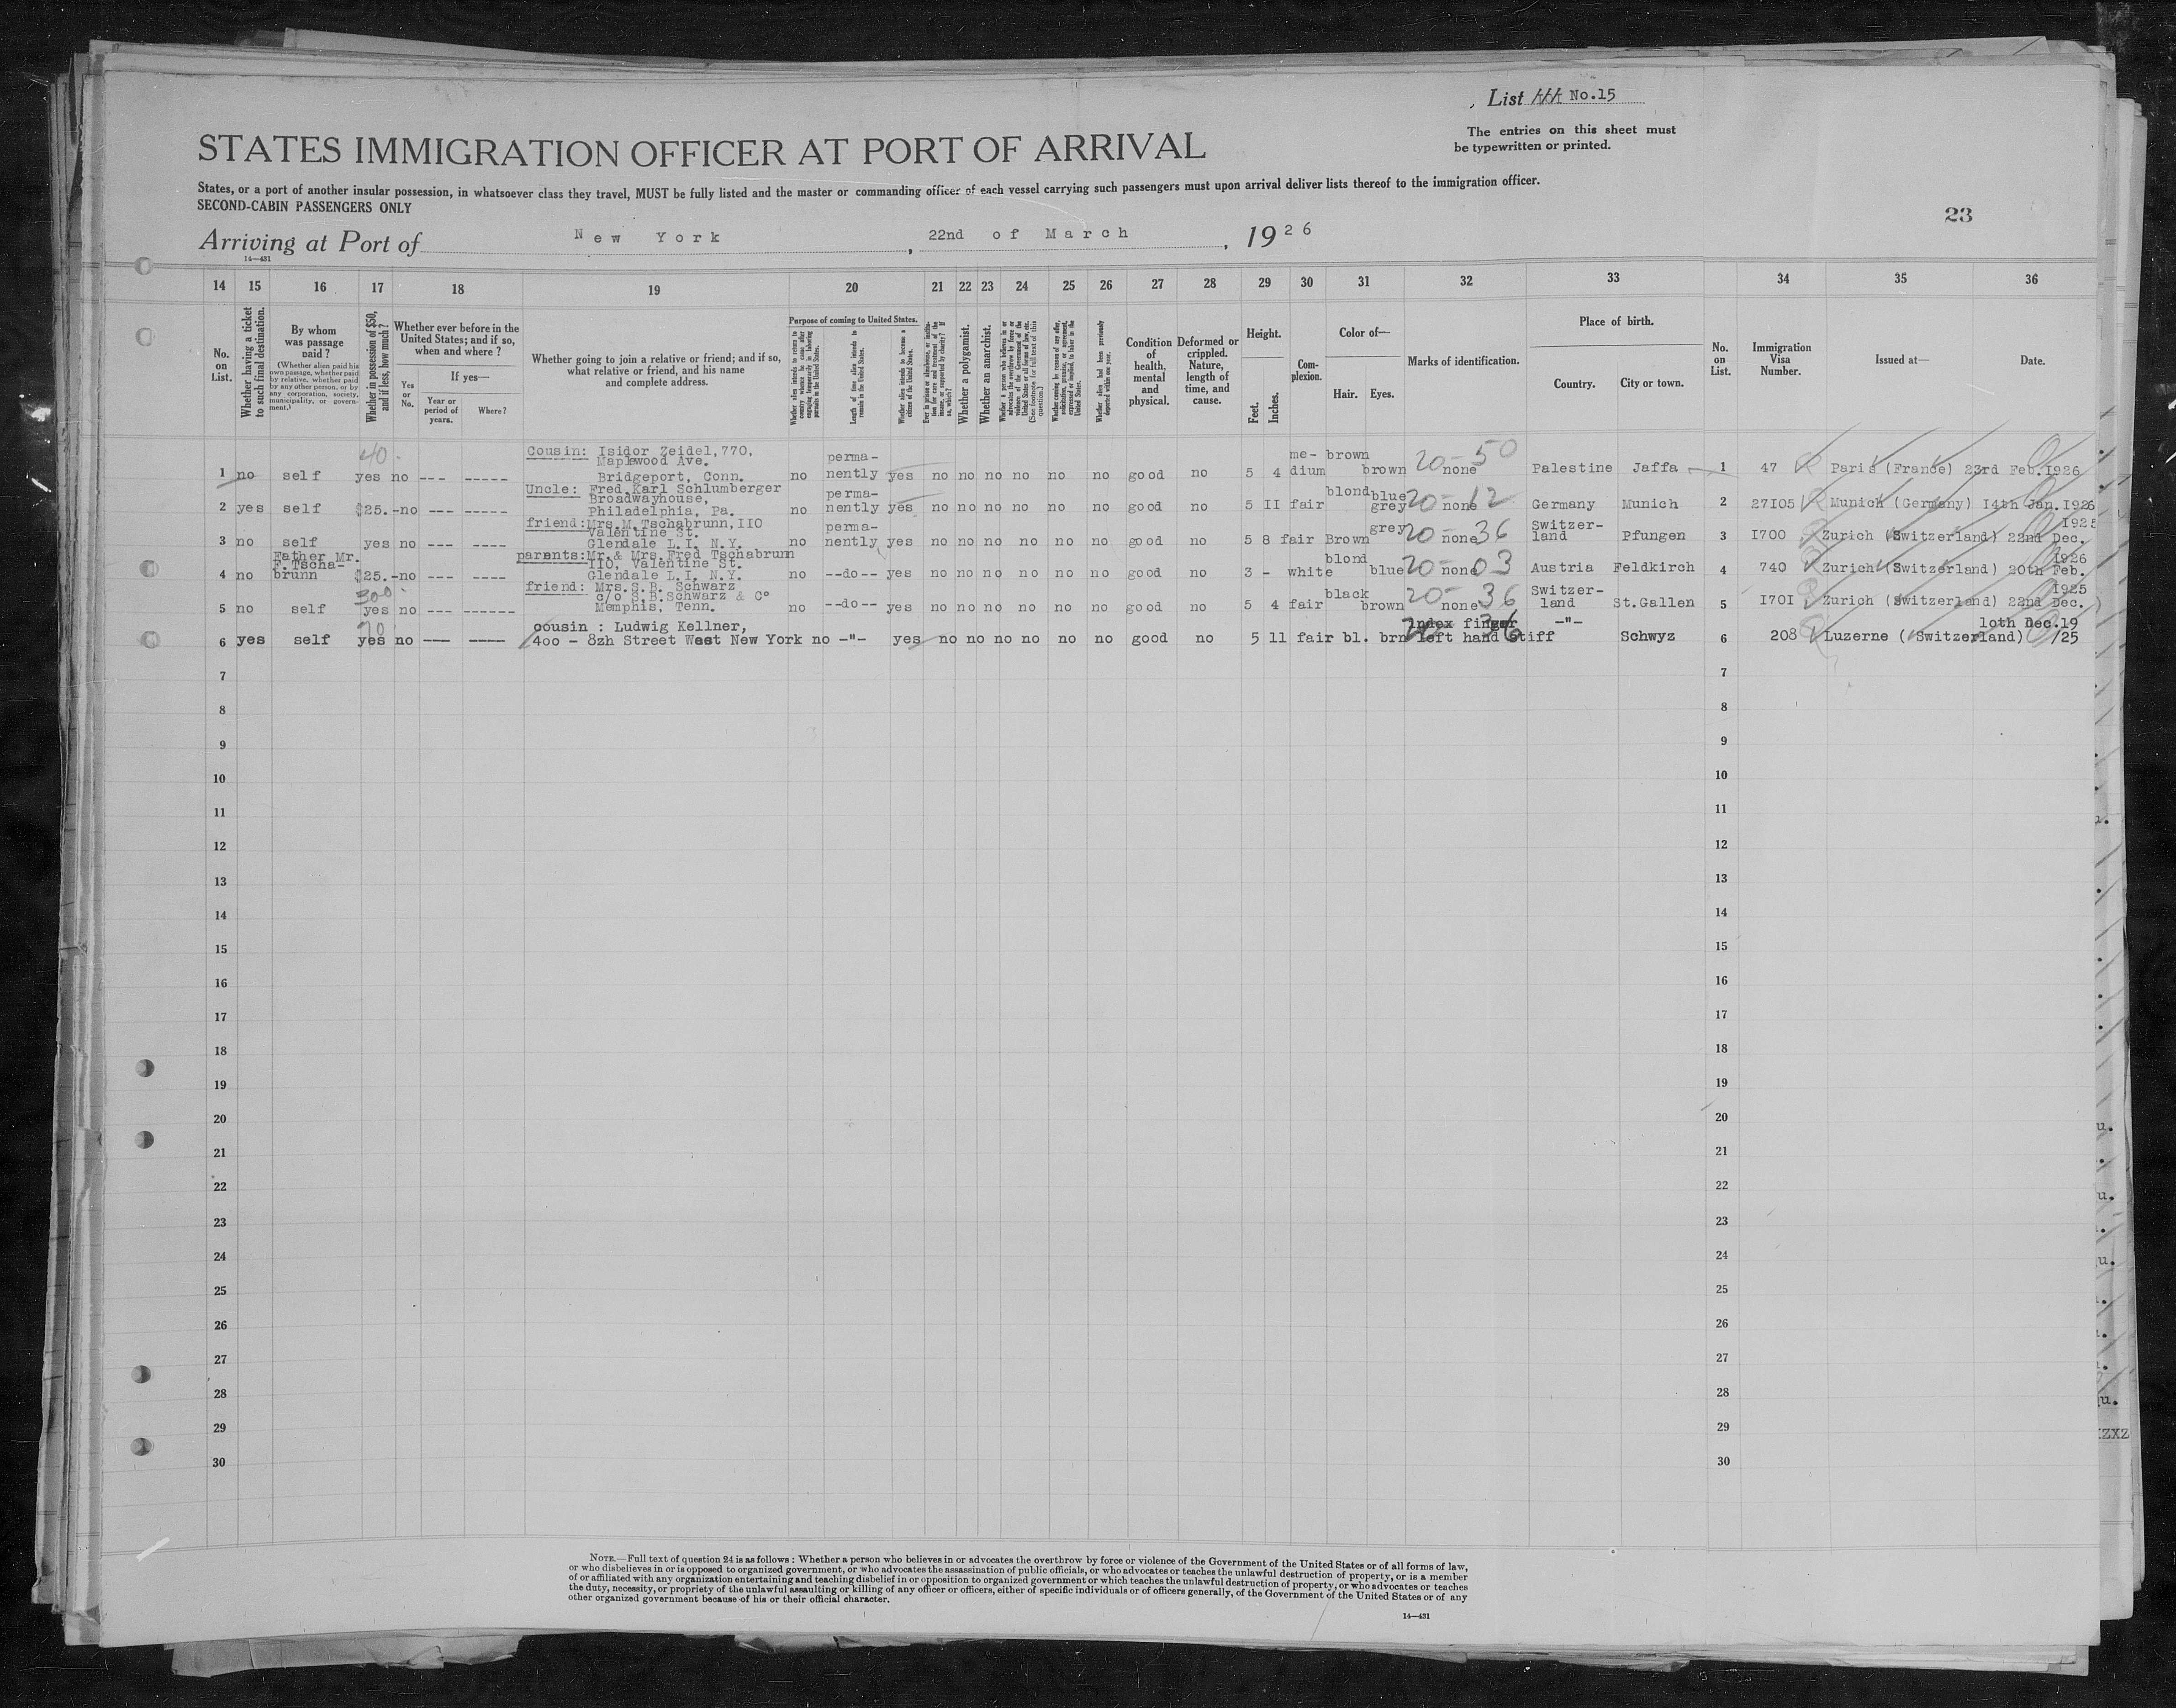 List No.15
The entries on this sheet must
be typewritten or printed.
STATES IMMIGRATION OFFICER AT PORT OF ARRIVAL
States, or a port of another insular possession, in whatsoever class they travel, MUST be fully listed and the master or commanding officer of each vessel carrying such passengers must upon arrival deliver lists thereof to the immigration officer.
SECOND-CABIN PASSENGERS ONLY
23
Arriving at Port of New York, 22nd of March, 1926
14—431
14 15 16 17 18 19 20 21 22 23 24 25 26 27 28 29 30 31 32 33 34 35 36
No. on List.
Whether having a ticket to such final destination.
By whom was passage paid?
(Whether alien paid his own passage, whether paid by relative, whether paid by any other person, or by any corporation, society, municipality, or government.)
Whether in possession of $50, and if less, how much?
Whether ever before in the United States; and if so, when and where?
Yes or No.
If yes—
Year or period of years.
Where?
Whether going to join a relative or friend; and if so, what relative or friend, and his name and complete address.
Purpose of coming to United States.
Whether alien intends to return to country whence he came after engaging temporarily in laboring pursuits in the United States.
Length of time alien intends to remain in the United States.
Whether alien intends to become a citizen of the United States.
Whether a polygamist.
Whether an anarchist.
Condition of health, mental and physical.
Deformed or crippled. Nature, length of time, and cause.
Height.
Feet.
Inches.
Complexion.
Color of—
Hair.
Eyes.
Marks of identification.
Place of birth.
Country.
City or town.
No. on List.
Immigration Visa Number.
Issued at—
Date.
1 no self 40.- yes no --- ----- Cousin: Isidor Zeidel, 770, Maplewood Ave. Bridgeport, Conn. no perma-nently yes no no no no no no good no 5 4 me-dium brown brown none 20-50 Palestine Jaffa 1 47 Paris (France) 23rd Feb. 1926
2 yes self $25.- no --- ----- Uncle: Fred. Karl Schlumberger Broadwayhouse, Philadelphia, Pa. no perma-nently yes no no no no no no good no 5 II fair blond blue grey none 20-12 Germany Munich 2 27I05 Munich (Germany) 14th Jan. 1926
3 no self yes no --- ---- friend: Mrs. M. Tschabrunn, IIO Valentine St. Glendale L.I. N.Y. no perma-nently yes no no no no no no good no 5 8 fair Brown grey none 20-36 Switzer-land Pfungen 3 I700 Zurich (Switzerland) 22nd Dec. 1925
4 no Father Mr. F. Tscha-brunn $25.- no --- ---- parents: Mr. & Mrs. Fred Tschabrunn IIO, Valentine St. Glendale L.I. N.Y. no --do-- yes no no no no no no good no 3 - white blond blue none 20-03 Austria Feldkirch 4 740 Zurich (Switzerland) 20th Feb. 1926
5 no self 300 yes no --- ------ friend: Mrs. S.B. Schwarz c/o S.B. Schwarz & Co Memphis, Tenn. no --do-- yes no no no no no no good no 5 4 fair black brown none 20-36 Switzer-land St.Gallen 5 I70I Zurich (Switzerland) 22nd Dec. 1925
6 yes self 70 yes no --- ---- cousin : Ludwig Kellner, 4oo - 8zh Street West New York no -"- yes no no no no no no good no 5 11 fair bl. brn index finger left hand stiff -"- Schwyz 6 208 Luzerne (Switzerland) loth Dec.19/25
7 7
8 8
9 9
10 10
11 11
12 12
13 13
14 14
15 15
16 16
17 17
18 18
19 19
20 20
21 21
22 22
23 23
24 24
25 25
26 26
27 27
28 28
29 29
30 30
NOTE.—Full text of question 24 is as follows: Whether a person who believes in or advocates the overthrow by force or violence of the Government of the United States or of all forms of law,
or who disbelieves in or is opposed to organized government, or who advocates the assassination of public officials, or who advocates or teaches the unlawful destruction of property, or is a member
of or affiliated with any organization entertaining and teaching disbelief in or opposition to organized government or which teaches the unlawful destruction of property, or who advocates or teaches
the duty, necessity, or propriety of the unlawful assaulting or killing of any officer or officers, either of specific individuals or of officers generally, of the Government of the United States or of any
other organized government because of his or their official character.
14—431